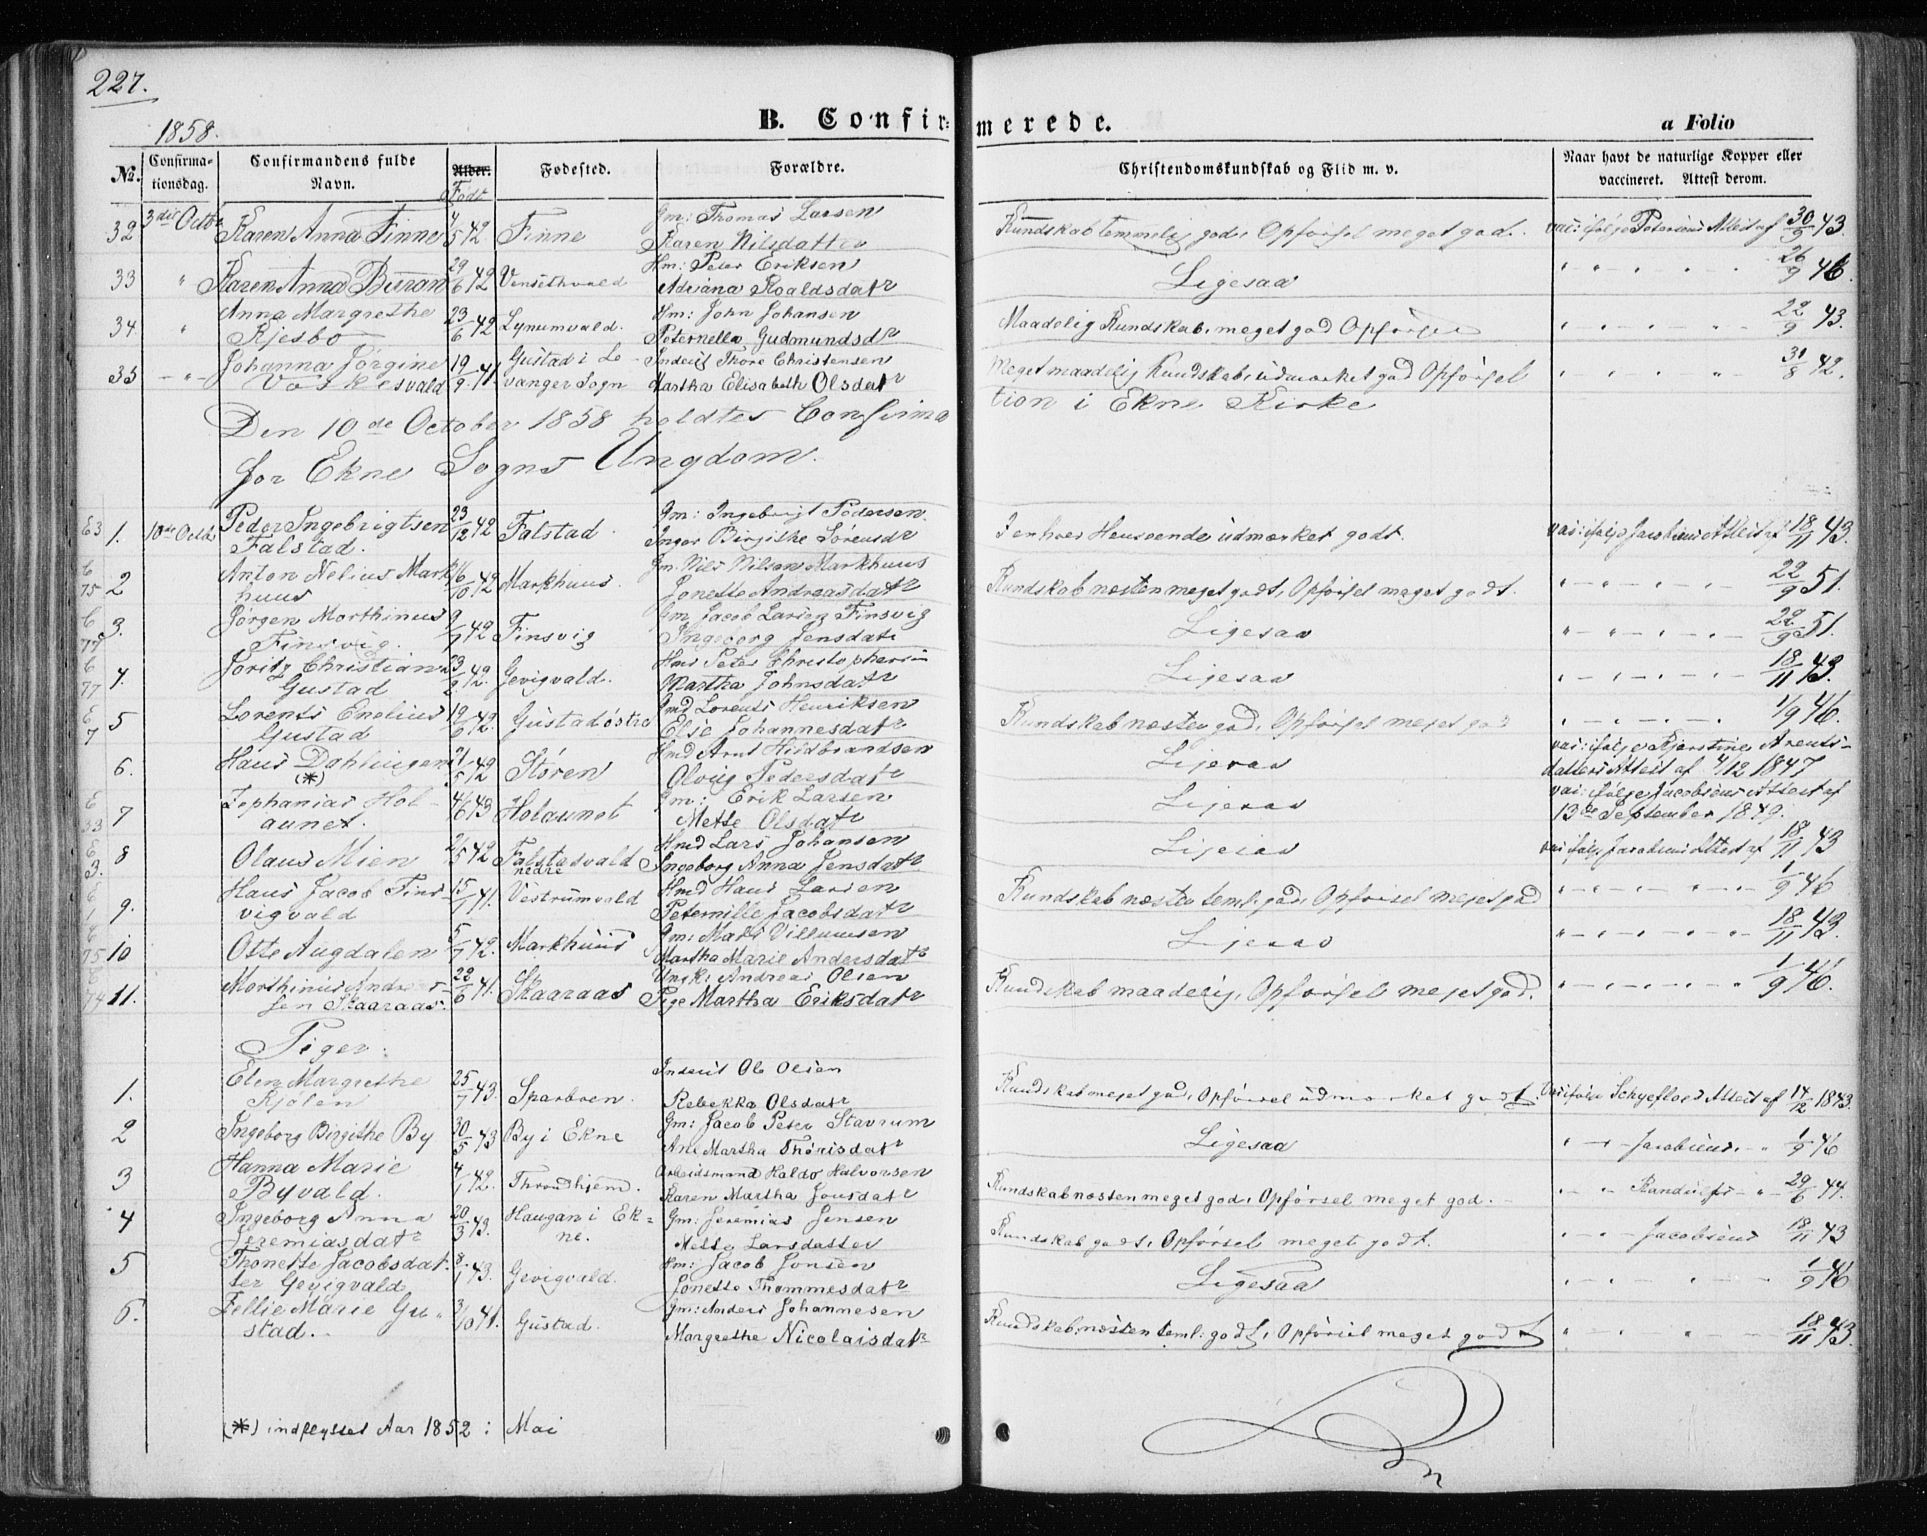 227.
1858.
B. Confirmerede.
a Folio
No. Confirmationsdag. Confirmandens fulde Navn. Alder. Født Fødested. Forældre. Christendomskundskab og Flid m. v. Naar havt de naturlige Kopper eller vaccineret. Attest derom.
32 3die Octbr Karen Anna Finne 4/5 42 Finne Gm: Thomas Larsen
Karen Nilsdatter Kundskab temmelig god, Opførsel meget god. vac: ifølge Petersens Attest af 30/9 43.
33 " Karen Anna Buran 29/6 42 Vensethvald Hm: Peter Eriksen
Adriana Roaldsdatr Ligesaa " " " " " 26/9 46.
34. " Anna Margrethe
Kjesbo 23/6 42 Lynumvald. Hm: John Johansen
Peternella Gudmundsdr Maadelig Kundskab, meget god Opførsel " " " " " 22/9 43.
35 - " - Johanna Jørgine
Voskesvald 19/9 41. Gustad i Levanger Sogn Inderst Tore Christensen
Martha Elisabeth Olsdatr Meget maadelig Kundskab, udmærket god Opførsel " " " " 31/8 42.
Den 10de October 1858 holdtes Confirmation i Ekne Kirke
for Ekne Sogns Ungdom.
1. 10de Octb Peder Ingebrigtsen
Falstad. 23/12 42 Falstad. Gm: Ingebrigt Pedersen.
Inger Birgithe Sørensdr I enhver Henseende udmærket godt. vac: ifølge Jacobsens Attest af 18/11 43.
2 Anton Nelius Markhuus 16/10 42 Markhuus. Gm. Nils Nilsen Markhuus
Jonette Andreasdatr Kundskab næsten meget godt, Opførsel meget godt. " - " - " - " 22/9 51.
3. Jørgen Morthinus
Finsvig. 9/7 42 Finsvig Gm Jacob Larsen Finsvig
Ingeborg Jensdatr Ligesaa " " - " - " - 22/9 51.
4. Joritz Christian
Gustad 23/2 42. Gevigvald. Hmd Peter Christophersen
Martha Johnsdatr Ligesaa " - " - " - " - " 18/11 43.
5 Lorents Enelius
Gustad 19/6 42. Gustadøstre Gmd Lorents Henriksen
Else Johannesdatr Kundskab næsten god, Opførsel meget god " - " - " - " 1/9 46.
6. Hans Dahlingen
(*) 21/5 42 Støren Hmd Arnt Hildbrandsen
Olvig Pedersdatr Ligesaa vac: ifølge Kjerstine Arentsdatters Attest af 4/12 1847
7 Zephanias Holaunet. 4/6 43 Holaunet Gm: Erik Larsen
Mette Olsdatr Ligesaa vac: ifølge Jacobsens Attest af
13de September 1849.
8 Olaus Mien 2/5 42 Falstadvald
nedre Hmd Lars Johansen
Ingeborg Anna Jensdatr Ligesaa vac: ifølge Jacobsens Attest af 18/11 43
9. Hans Jacob Finsvigvald 15/7 41. Vestrumvald Hmd Hans Larsen
Peternille Jacobsdatr Kundskab næsten teml: god, Opførsel meget god " - " - " " " 1/9 46
10 Otte Augdalen 5/7 42. Markhuus Gm: Mats Villumsen
Martha Marie Andersdatr Ligesaa " - " - " - " " 18/11 43.
11. Morthinus Andreassen Skaaraas. 22/6 41. Skaaraas Ungk: Andreas Olsen
Pige Martha Eriksdatr Kundskab maadelig, Opførsel meget god. " - " - " - " " 1/9 46.
Piger.
1. Elen Margrethe
Kjølen 25/7 43. Sparboen. Inderst Ole Olsen
Rebekka Olsdatr Kundskab meget god, Opførsel udmærket godt. Vac: ifølge Schjeflo's Attest af 14/12 1843.
2 Ingeborg Birgithe By 30/5 43 By i Ekne Gm: Jacob Peter Stavrum
Ane Martha Thørisdatr Ligesaa " - " Jacobsens - " 1/9 46
3 Hanna Marie
Byvald. 4/1 42. Throndhjem. Arbeidsmand Haldo Halvorsen
Karen Martha Jonsdatr Kundskab næsten meget god, Opførsel meget god. " - " 29/6 44.
4 Ingeborg Anna
Jeremiasdatr 20/3 43. Haugan i Ekne. Gm: Jeremias Jensen
Mette Larsdatter Kundskab godt, Opførsel meget godt. " - " - Jacobsens 18/11 43
5 Thonette Jacobsdatter Gevigvald 8/1 43. Gevigvald. Hm: Jacob Jonsen
Jonette Thommesdatr Ligesaa " - " - " " 1/9 46
6. Zellie Marie Gustad. 3/10 41. Gustad. Gm: Anders Johannesen
Margrethe Nicolaisdatr Kundskab næsten teml: godt, Opførsel meget godt " - " " " 18/11 43.
(*) indflyttet Aar 1852 i Mai